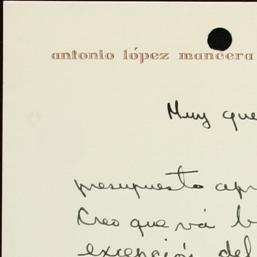 antonio lópez mancera
Muy que
presupuesto apr
Creo que vá b
excepción del